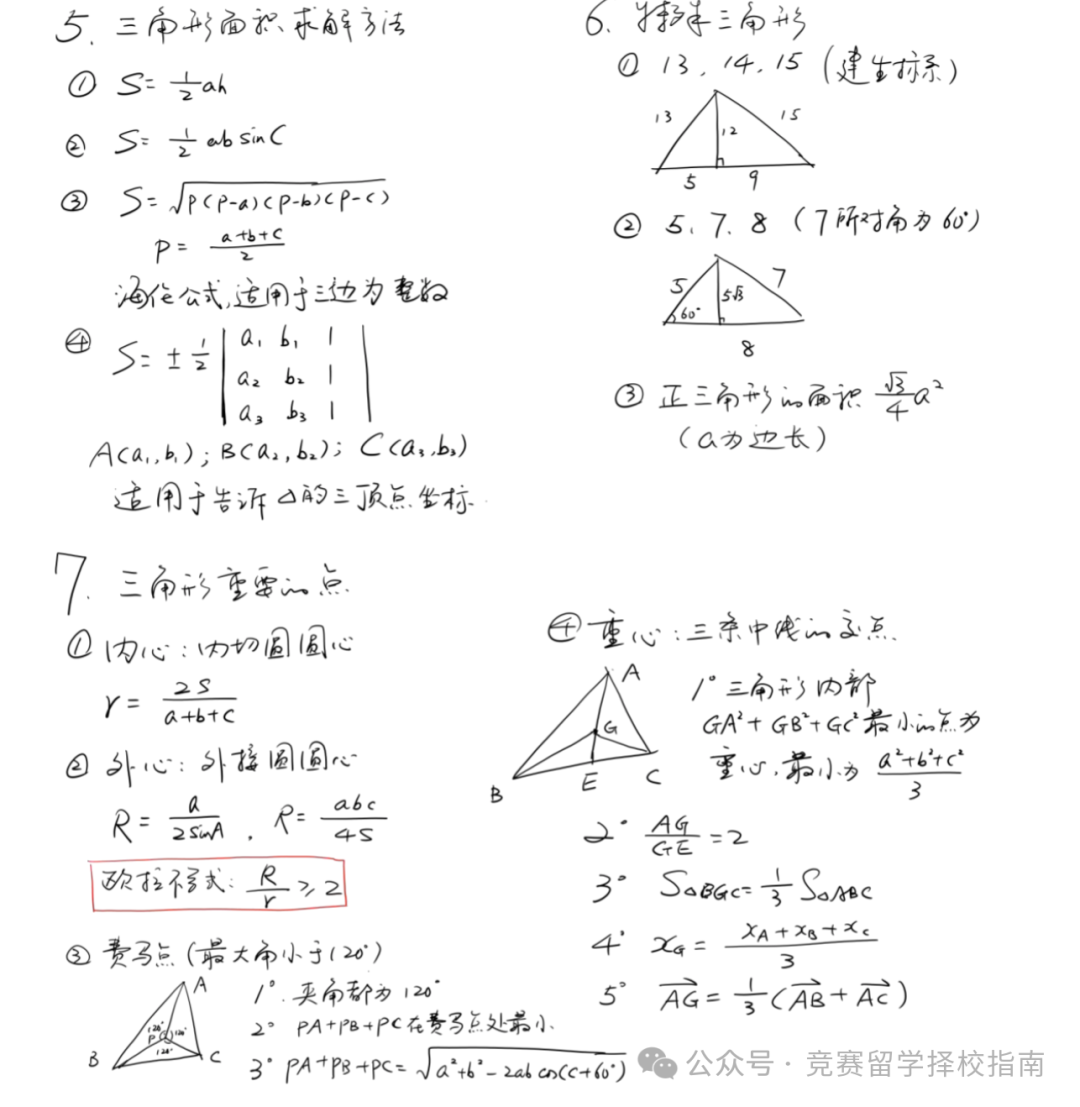 5. 三角形面积求解方法
① S= 1/2 ah
② S= 1/2 ab sinC
③ S= √(P(P-a)(P-b)(P-c))
P = (a+b+c)/2
海伦公式,适用于三边为整数
④ S= ± 1/2 | a₁ b₁ 1 |
| a₂ b₂ 1 |
| a₃ b₃ 1 |
A(a₁,b₁); B(a₂,b₂); C(a₃,b₃)
适用于告诉△的三顶点坐标.
6. 特殊三角形
① 13, 14, 15 (建坐标系)
13 12 15
5 9
② 5、7、8 (7所对角为60°)
5 5√3 7
60°
8
③ 正三角形的面积 √3/4 a²
(a为边长)
7. 三角形重要的点
① 内心:内切圆圆心
r = 2S/(a+b+c)
② 外心:外接圆圆心
R = a/(2sinA) , R= abc/(4S)
欧拉不等式: R/r ≥ 2
③ 费马点(最大角小于120°)
A
120° P 120°
120°
B C
1°. 夹角都为120°
2° PA+PB+PC在费马点处最小.
3° PA+PB+PC= √(a²+b²-2ab cos(C+60°))
④ 重心:三条中线的交点.
A
G
B E C
1° 三角形内部
GA²+GB²+GC²最小的点为
重心,最小为 (a²+b²+c²)/3
2° AG/GE =2
3° S△BGC= 1/3 S△ABC
4° x_G = (x_A+x_B+x_C)/3
5° →AG= 1/3 (→AB+→AC)
公众号·竞赛留学择校指南